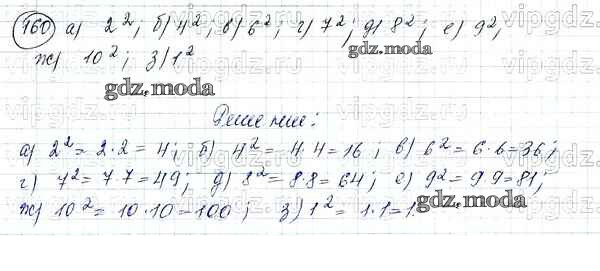 160 а) 2²; б) 4²; в) 6²; г) 7²; д) 8²; е) 9²;
ж) 10²; з) 1²
gdz.moda
gdz.moda
Решение:
а) 2² = 2·2 = 4; б) 4² = 4·4 = 16; в) 6² = 6·6 = 36;
г) 7² = 7·7 = 49; д) 8² = 8·8 = 64; е) 9² = 9·9 = 81;
ж) 10² = 10·10 = 100; з) 1² = 1·1 = 1.
gdz.moda